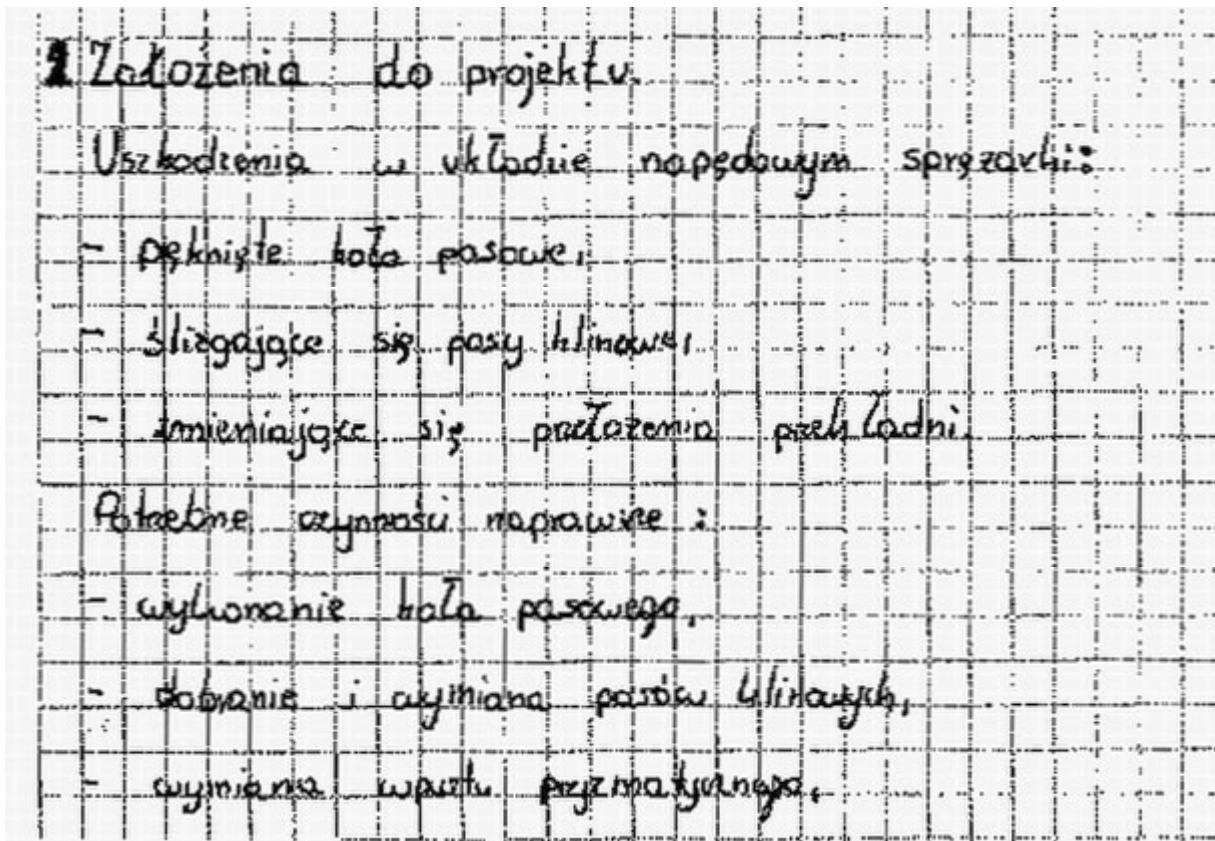 1 Założenia do projektu.
Uszkodzenia w układzie napędowym sprężarki:
- pęknięte koło pasowe,
- ślizgające się pasy klinowe,
- zmieniające się przełożenia przekładni.
Potrzebne czynności naprawcze :
- wykonanie koła pasowego,
- dobranie i wymiana pasów klinowych,
- wymiana wpustu pryzmatycznego.